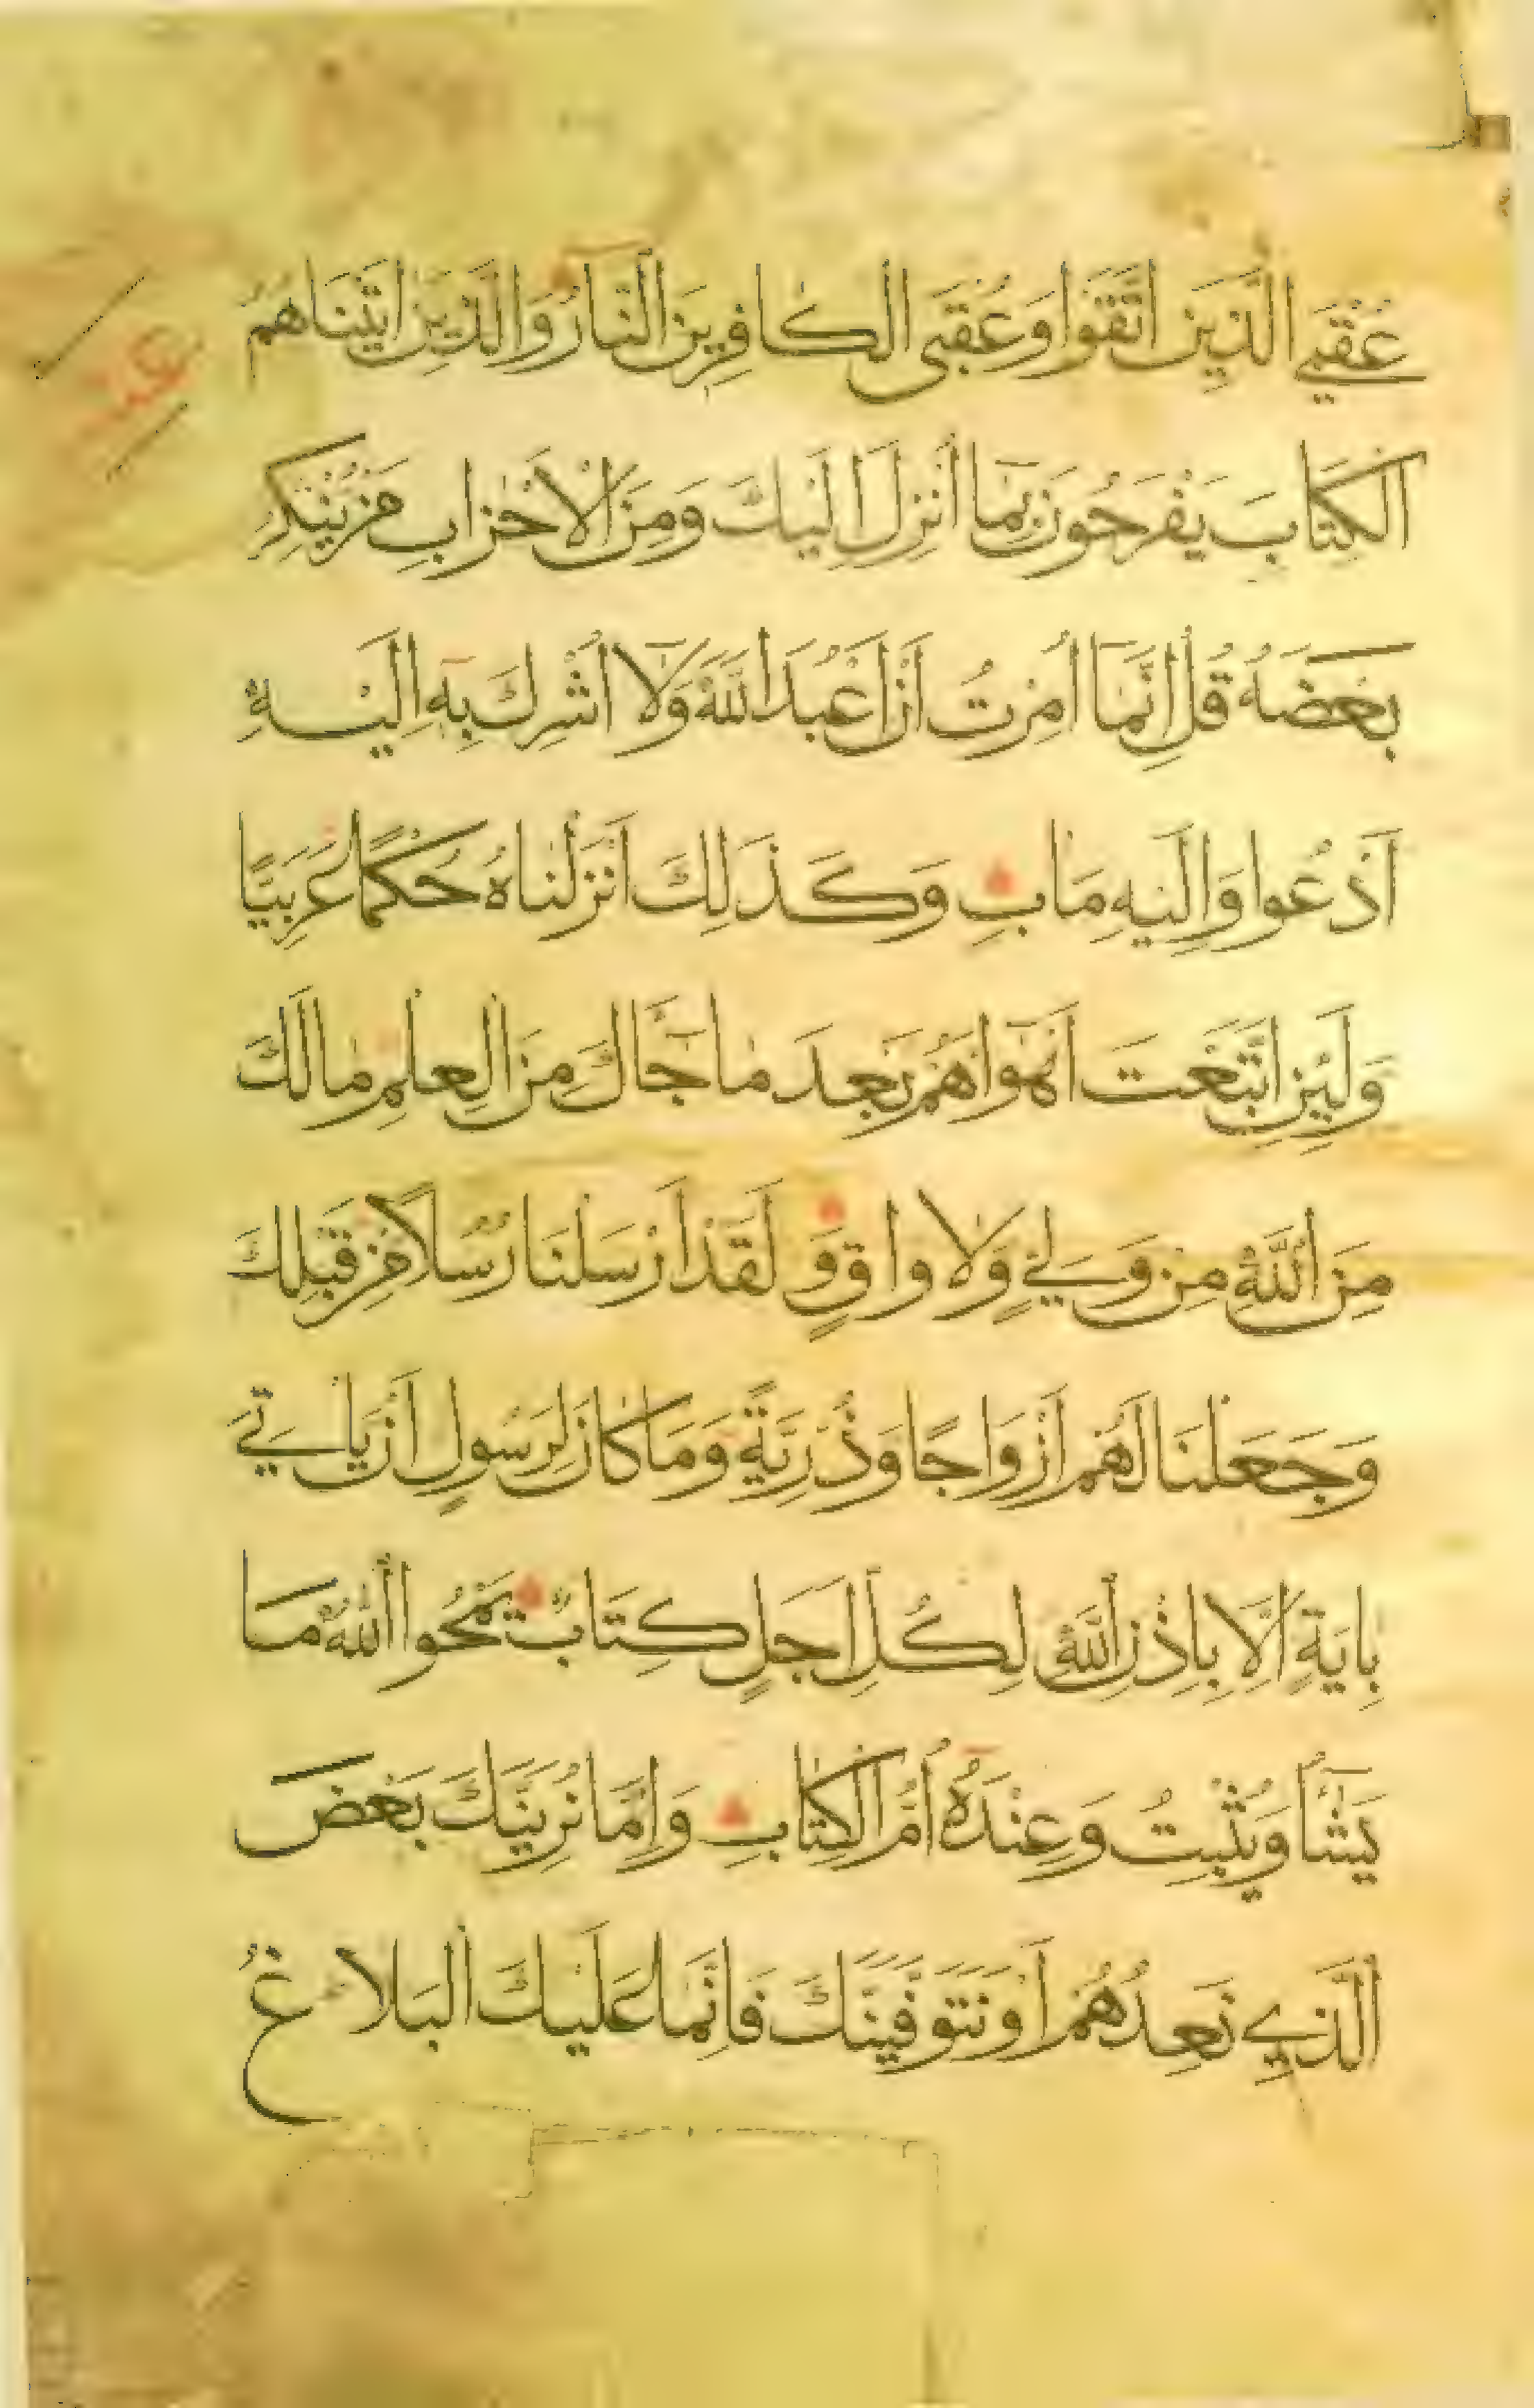 عُقْبَي الَّذِينَ اتَّقَوْا وَعُقْبَى الْكَافِرِينَ النَّارُ وَالَّذِينَ اتَيْنَاهُمُ
الْكِتَابَ يَفْرَحُونَ بِمَا اُنْزِلَ اِلَيْكَ وَمِنَ الْاَحْزَابِ مَنْ يُنْكِرُ
بَعْضَهُ قُلْ اِنَّمَا اُمِرْتُ اَنْ اَعْبُدَ اللّٰهَ وَلَا اُشْرِكَ بِهِ اِلَيْهِ
اَدْعُوا وَاِلَيْهِ مَاٰبِ وَكَذَلِكَ اَنْزَلْنَاهُ حُكْمًا عَرَبِيًّا
وَلَئِنِ اتَّبَعْتَ اَهْوَاهُمْ بَعْدَ مَا جَاكَ مِنَ الْعِلْمِ مَا لَكَ
مِنَ اللّٰهِ مِنْ وَلِيٍّ وَلَا وَاقٍ وَلَقَدْ اَرْسَلْنَا رُسُلًا مِنْ قَبْلِكَ
وَجَعَلْنَا لَهُمْ اَزْوَاجًا وَذُرِّيَّةً وَمَا كَانَ لِرَسُولٍ اَنْ يَاتِيَ
بِايَةٍ اِلَّا بِاِذْنِ اللّٰهِ لِكُلِّ اَجَلٍ كِتَابٌ يَمْحُوا اللّٰهُ مَا
يَشَاُ وَيُثْبِتُ وَعِنْدَهُ اُمُّ الْكِتَابِ وَاِمَّا نُرِيَنَّكَ بَعْضَ
الَّذِي نَعِدُهُمْ اَوْ نَتَوَفَّيَنَّكَ فَاِنَّمَا عَلَيْكَ الْبَلَاغُ